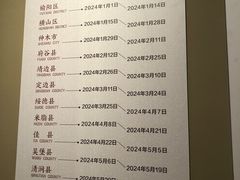 榆阳区 2024年1月1日 2024年1月14日
YUYANG DISTRICT
横山区 2024年1月15日 2024年1月28日
HENGSHAN DISTRICT
神木市 2024年1月29日 2024年2月11日
SHENMU CITY
府谷县 2024年2月12日 2024年2月25日
FUGU COUNTY
靖边县 2024年2月26日
JINGBIAN COUNTY
定边县 2024年3月11日 2024年3月24日
DINGBIAN COUNTY
绥德县 2024年3月25日 2024年4月7日
SUIDE COUNTY
米脂县 2024年4月8日 2024年4月21日
MIZHI COUNTY
佳 县 2024年4月22日 2024年5月5日
JIA COUNTY
吴堡县 2024年5月6日 2024年5月19日
WUBU COUNTY
清涧县
QINGJIAN COUNTY